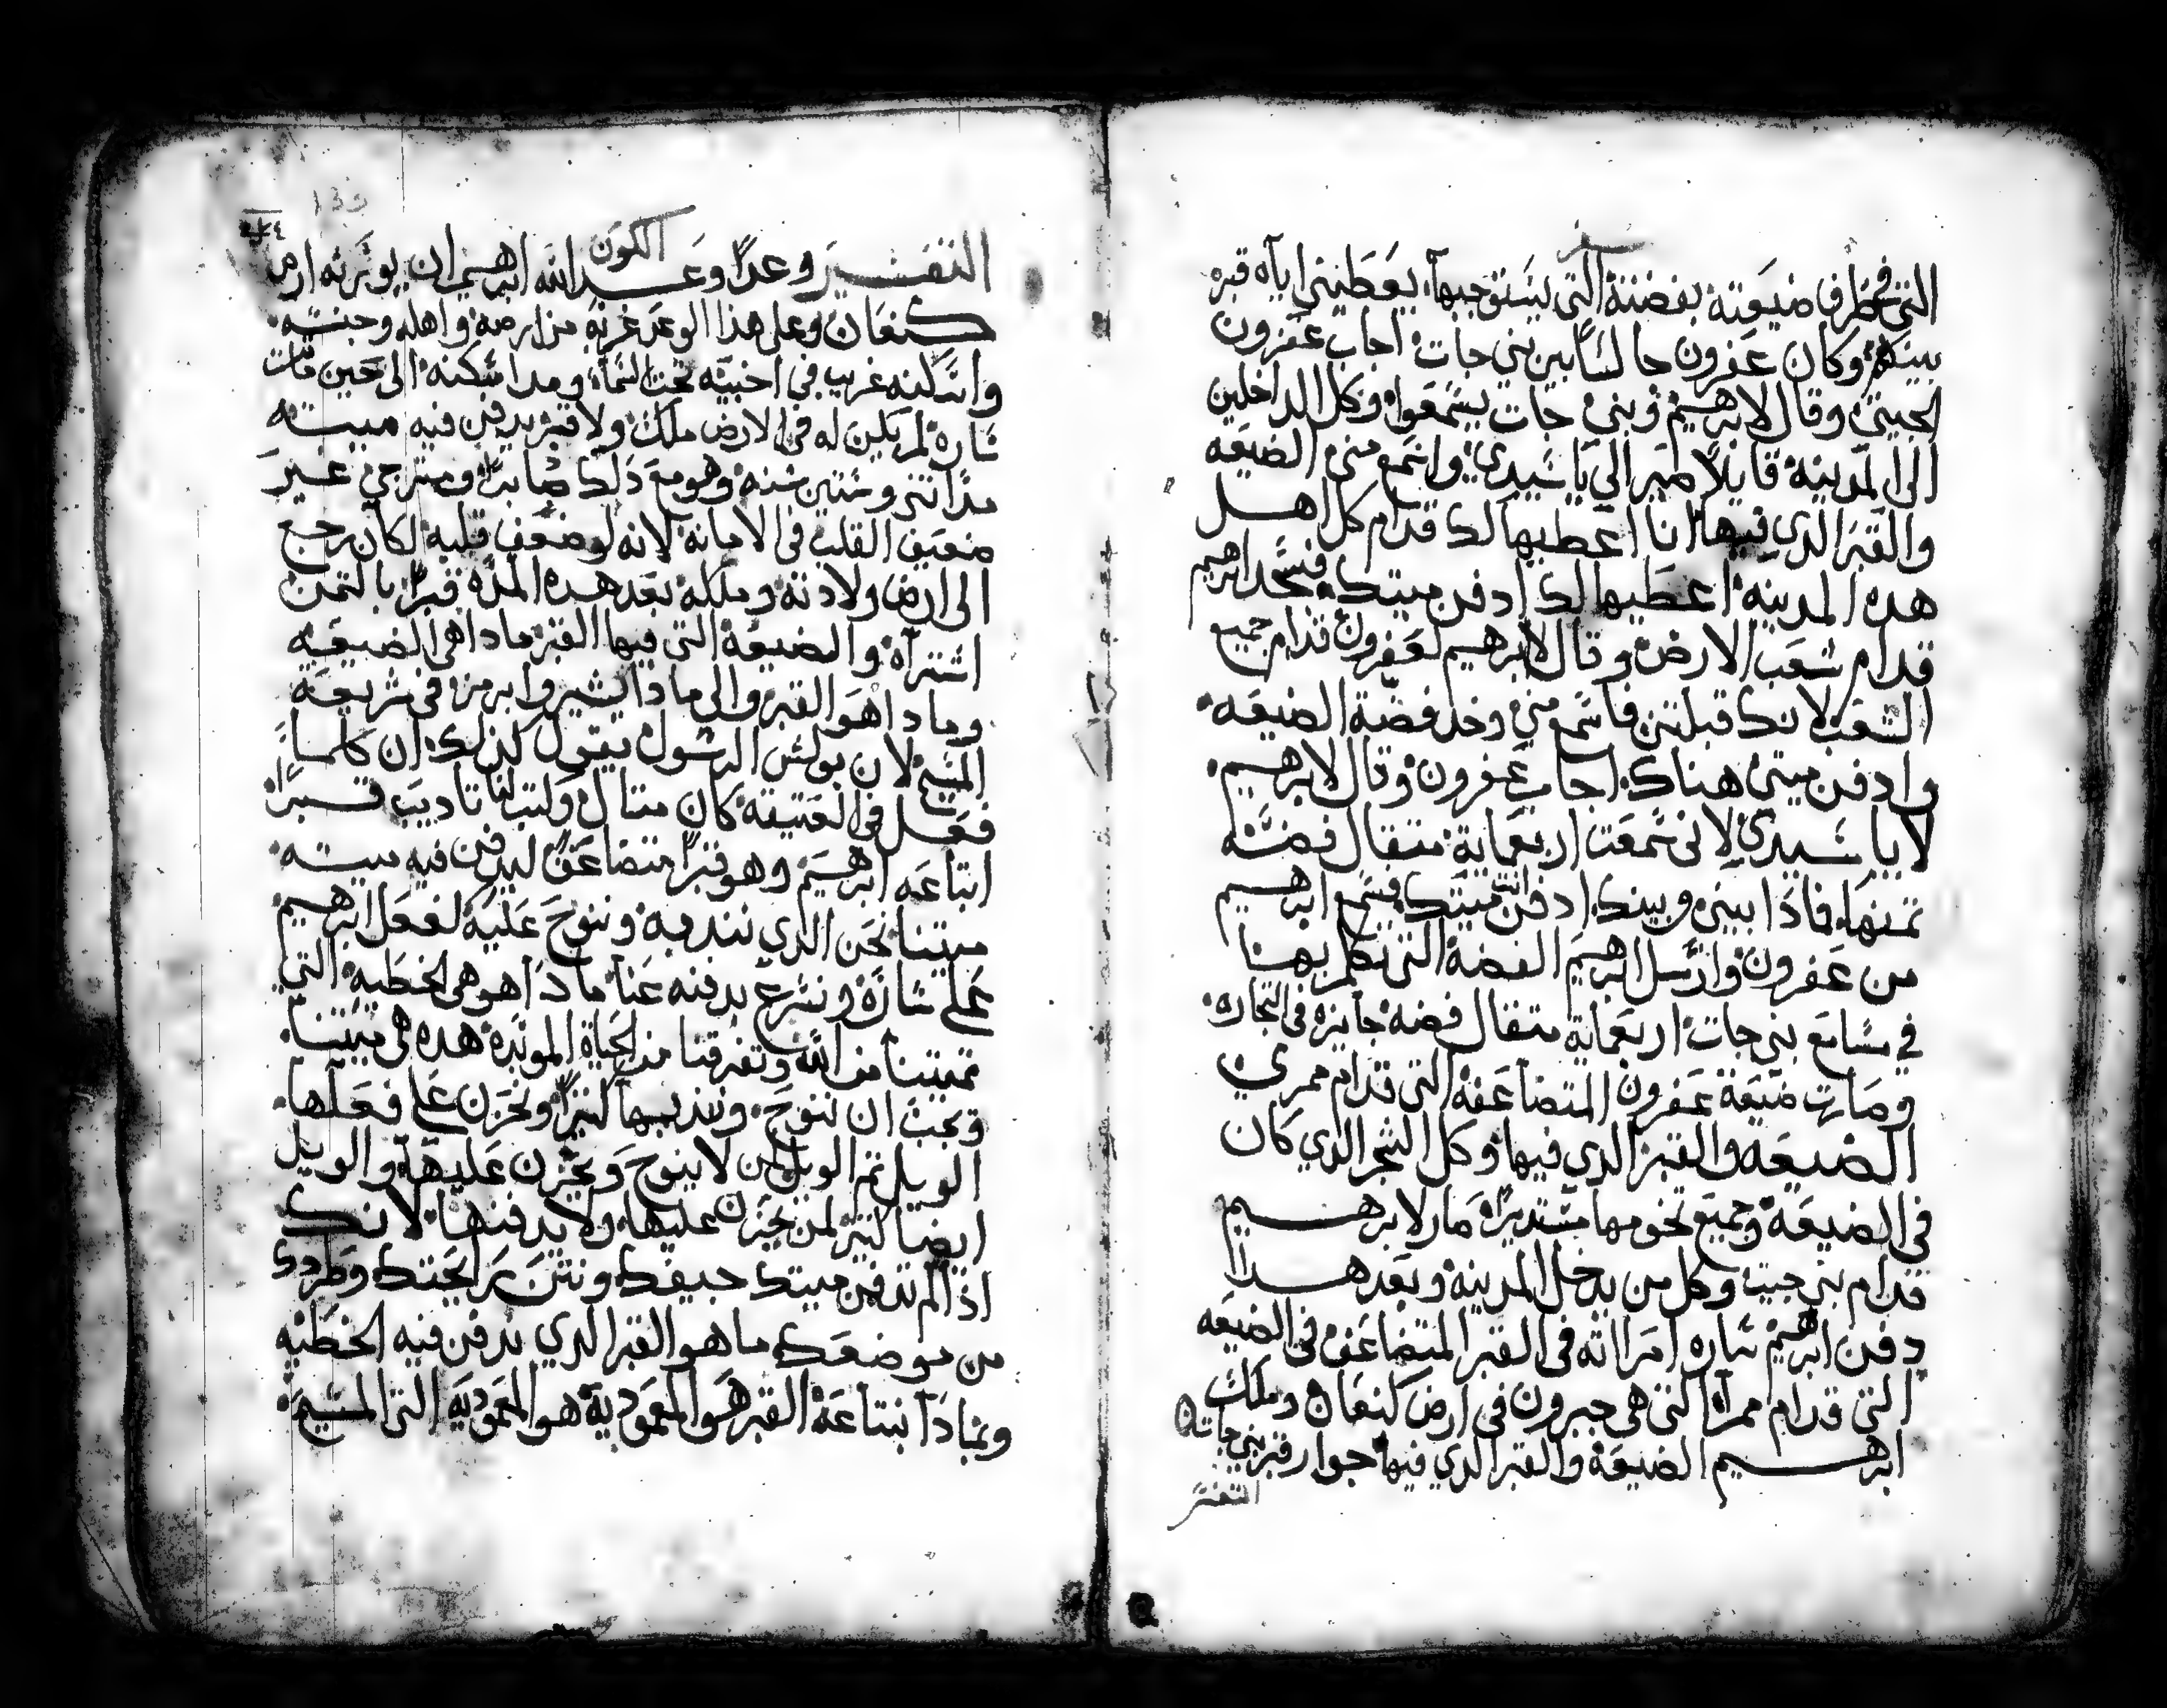 سفر
التي في طرف ضيعته بفضته التي يستوجبها يعطيني اياه قبر
بينكم وكان عفرون جالسًا بين بني حات اجاب عفرون
الحيتي وقال لابرهيم وبني حات يسمعوا وكل الداخلين
الى المدينه قايلاً صير الي يا سيدي واسمع مني الضيعه
والقبر الدي فيها انا اعطيها لك قدام كل اهل
هده المدينه اعطيها لك ادفن ميتك فسجد ابرهيم
قدام شعب الارض وقال لابرهيم لعفرون قدام جميع
الشعب لانك قبلتني فاسمع مني وخد فضة الضيعه
وادفن ميتي هناك اجاب عفرون وقال لابرهيم
لا يا سيدي لاني سمعت اربعماية متقال فضه
تمنها فادا بيني وبينك ادفن انت ميتك فسمع ابرهيم
من عفرون وارسل ابرهيم الفضة التي تكلم بها
في مسامع بني حات اربعماية متقال فضه جايزه في التجاره
وصارت ضيعة عفرون المتضاعفه التي قدام ممري
الضيعه والقبر الدي فيها وكل الشجر الدي كان
في الضيعه وجميع تخومها مستديرًا صار لابرهيم
قدام بني حيت وكل من يدخل المدينه وبعد هدا
دفن ابرهيم ساره امراته في القبر المتضاعف في الضيعه
التي قدام ممرا التي هي حبرون في ارض كنعان وملك
ابرهيم الضيعه والقبر الدي فيها جوار قبر بني حات
التفسير
الكون
التفسير وعدًا وعد الله ابرهيم ان يورثه ارض
كنعان وعلى هذا الوعد غربه من ارضه واهله وجنسه
واسكنه غريب في اخبيه تحت السماء ومدا سكنه الى حين ماتت
ساره لم يكن له في الارض ملك ولا قبر يدفن فيه ميته
مدا اتنين وستين سنه وهو مع دلك صابرًا ومترجي غير
ضعيف القلب في الامانه لانه لو ضعف قلبه لكان رجع
الى ارض ولادته وملكه بعد هده المده قبرًا بالتمن
اشتراه والضيعه التي فيها القبر مادا هي الضيعه
ومادا هو القبر والى مادا يشير وايرمز في شريعة
المسيح لان بولس الرسول يقول كدلك ان كلما
فعل في العتيقه كان متال وكتب لنا تاديب قبرًا
ابتاعه ابرهيم وهو قبرًا متضاعف ليدفن فيه ميته
ميتنا نحن الدي نندبه وننوح عليه كفعل ابرهيم
على ساره ونسرع بدفنه عنا مادا هو هي الخطيه التي
تميتنا من الله وتفرقنا من الحياة الموبده هده هي ميتتنا
ويجب ان ننوح وننديها كتيرًا ونحزن على فعلها
الويل تم الويل لمن لا ينوح ويحزن عليها والويل
ايضا كتير لمن يحزن عليها ولا يدفنها لانك
اذا لم تدفن ميتك جيفك ونتن رايحتك وطردك
من موضعك ما هو القبر الدي تدفن فيه الخطيه
وبمادا ابتاعه القبر هو المعموديه هو المعموديه التي المسيح